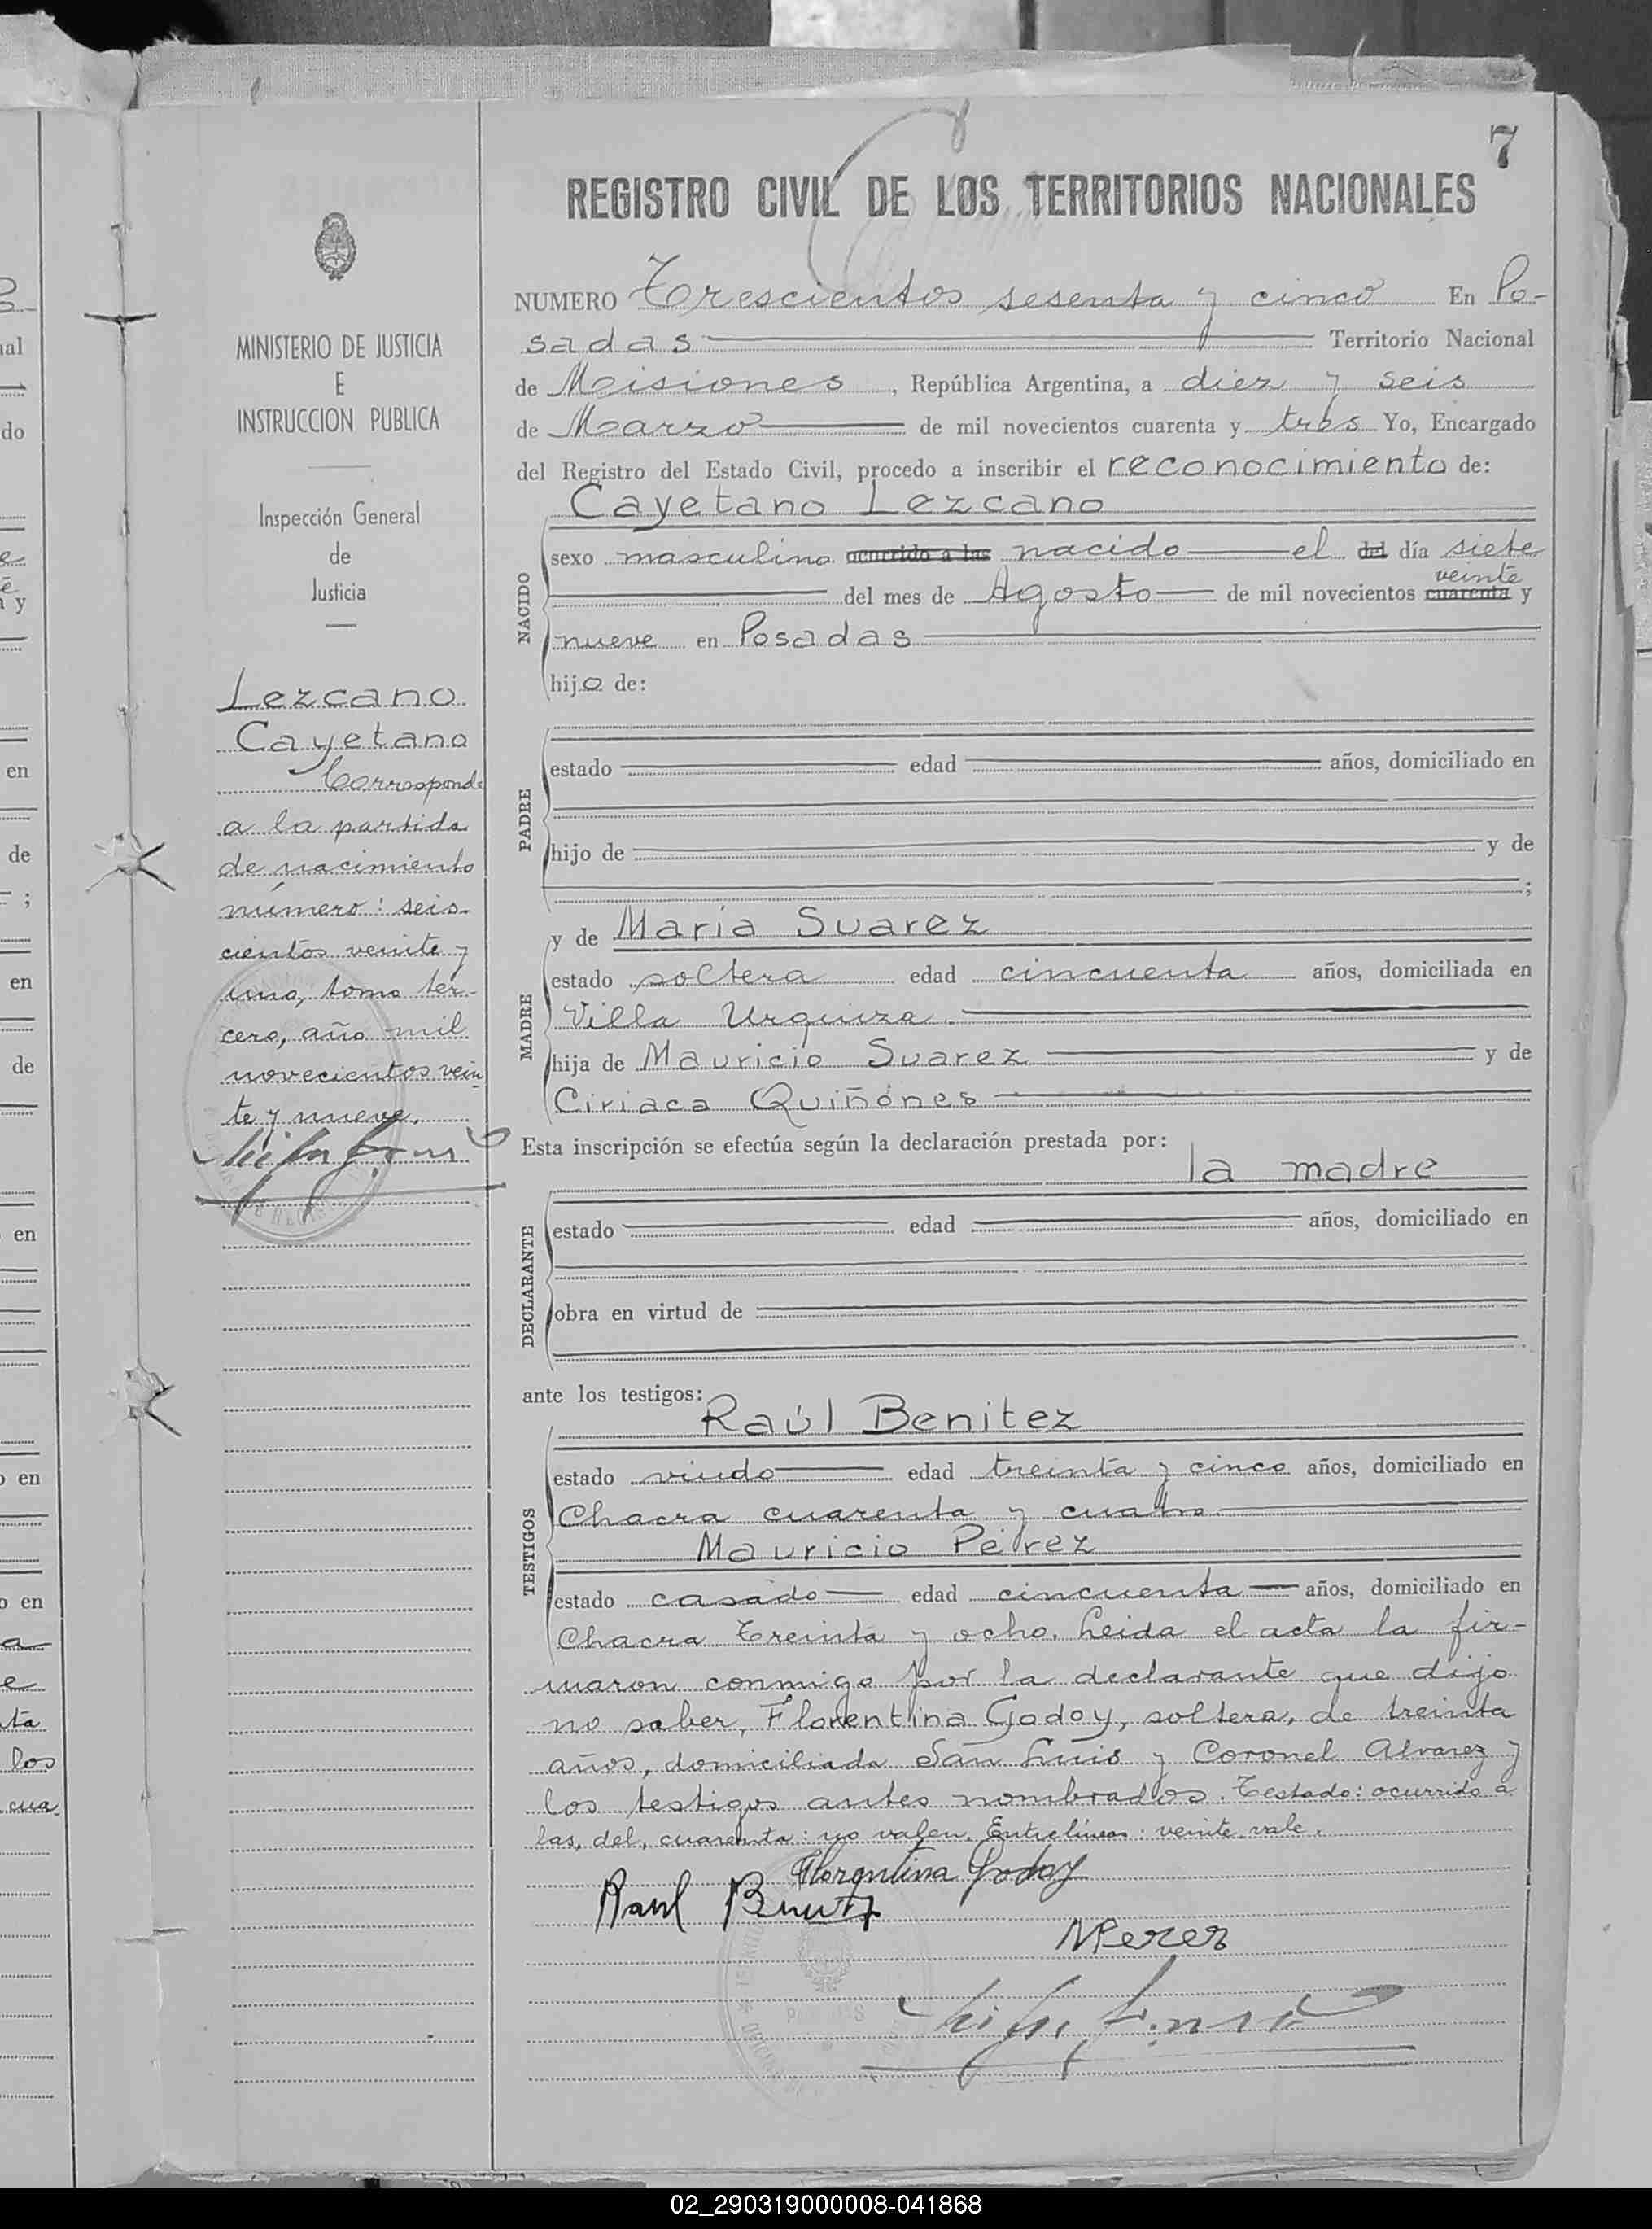 7
REGISTRO CIVIL DE LOS TERRITORIOS NACIONALES
MINISTERIO DE JUSTICIA
E
INSTRUCCION PUBLICA
Inspección General
de
Justicia
Lezcano
Cayetano
Corresponde
a la partida
de nacimiento
número: seis-
cientos veinte y
uno, tomo ter-
cero, año mil
novecientos vein
te y nueve.
NUMERO Trescientos sesenta y cinco En Po-
sadas Territorio Nacional
de Misiones, República Argentina, a diez y seis
de Marzo de mil novecientos cuarenta y tres Yo, Encargado
del Registro del Estado Civil, procedo a inscribir el reconocimiento de:
Cayetano Lezcano
NACIDO
sexo masculino ocurrido a las nacido el del día siete
veinte
del mes de Agosto de mil novecientos cuarenta y
nueve en Posadas
hijo de:
PADRE
estado edad años, domiciliado en
hijo de y de
;
MADRE
y de Maria Suarez
estado soltera edad cincuenta años, domiciliada en
Villa Urquiza.
hija de Mauricio Suarez y de
Ciriaca Quiñónes
Esta inscripción se efectúa según la declaración prestada por:
la madre
DECLARANTE
estado edad años, domiciliado en
obra en virtud de
ante los testigos:
Raúl Benitez
TESTIGOS
estado viudo edad treinta y cinco años, domiciliado en
Chacra cuarenta y cuatro
Mauricio Pérez
estado casado edad cincuenta años, domiciliado en
Chacra treinta y ocho. Leida el acta la fir-
maron conmigo por la declarante que dijo
no saber, Florentina Godoy, soltera, de treinta
años, domiciliada San Luis y Coronel Alvarez y
los testigos antes nombrados. Testado: ocurrido a
las, del, cuarenta: no valen. Entrelíneas: veinte. vale.
Florentina Godoy
Raul Benitez
MPerez
02_290319000008-041868